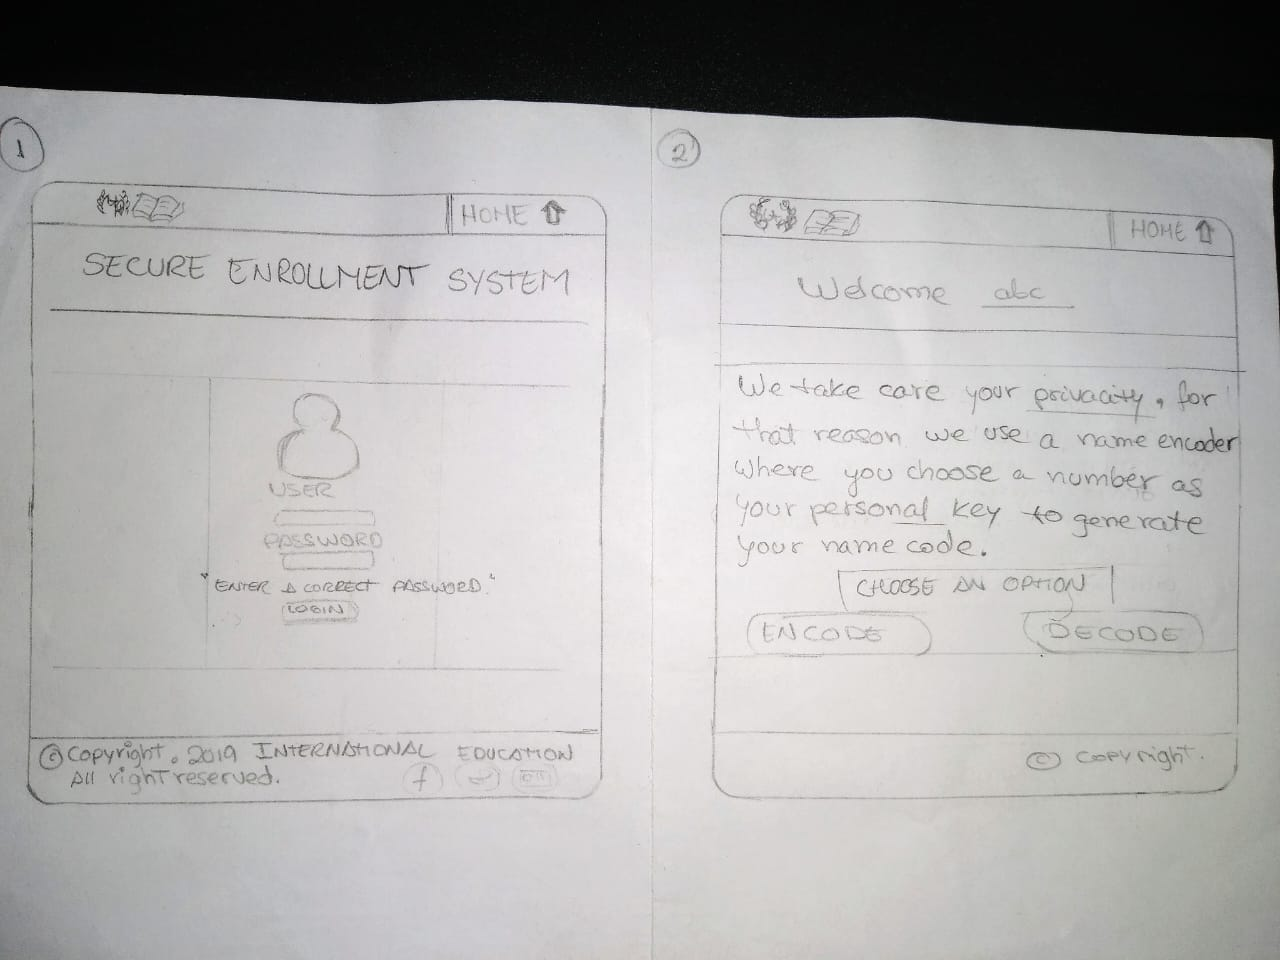 1
HOME
SECURE ENROLLMENT SYSTEM
USER
PASSWORD
"ENTER A CORRECT PASSWORD."
LOGIN
© Copyright. 2019 INTERNATIONAL EDUCATION
All right reserved.
f
2
HOME
Welcome abc
We take care your privacity, for
that reason we use a name encoder
where you choose a number as
your personal key to generate
your name code.
CHOOSE AN OPTION
ENCODE DECODE
© copyright.